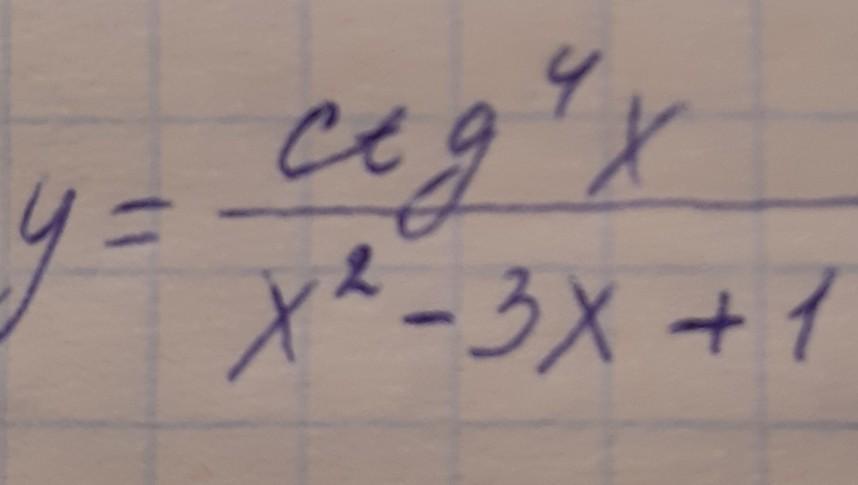 y = ctg⁴x / (x² - 3x + 1)